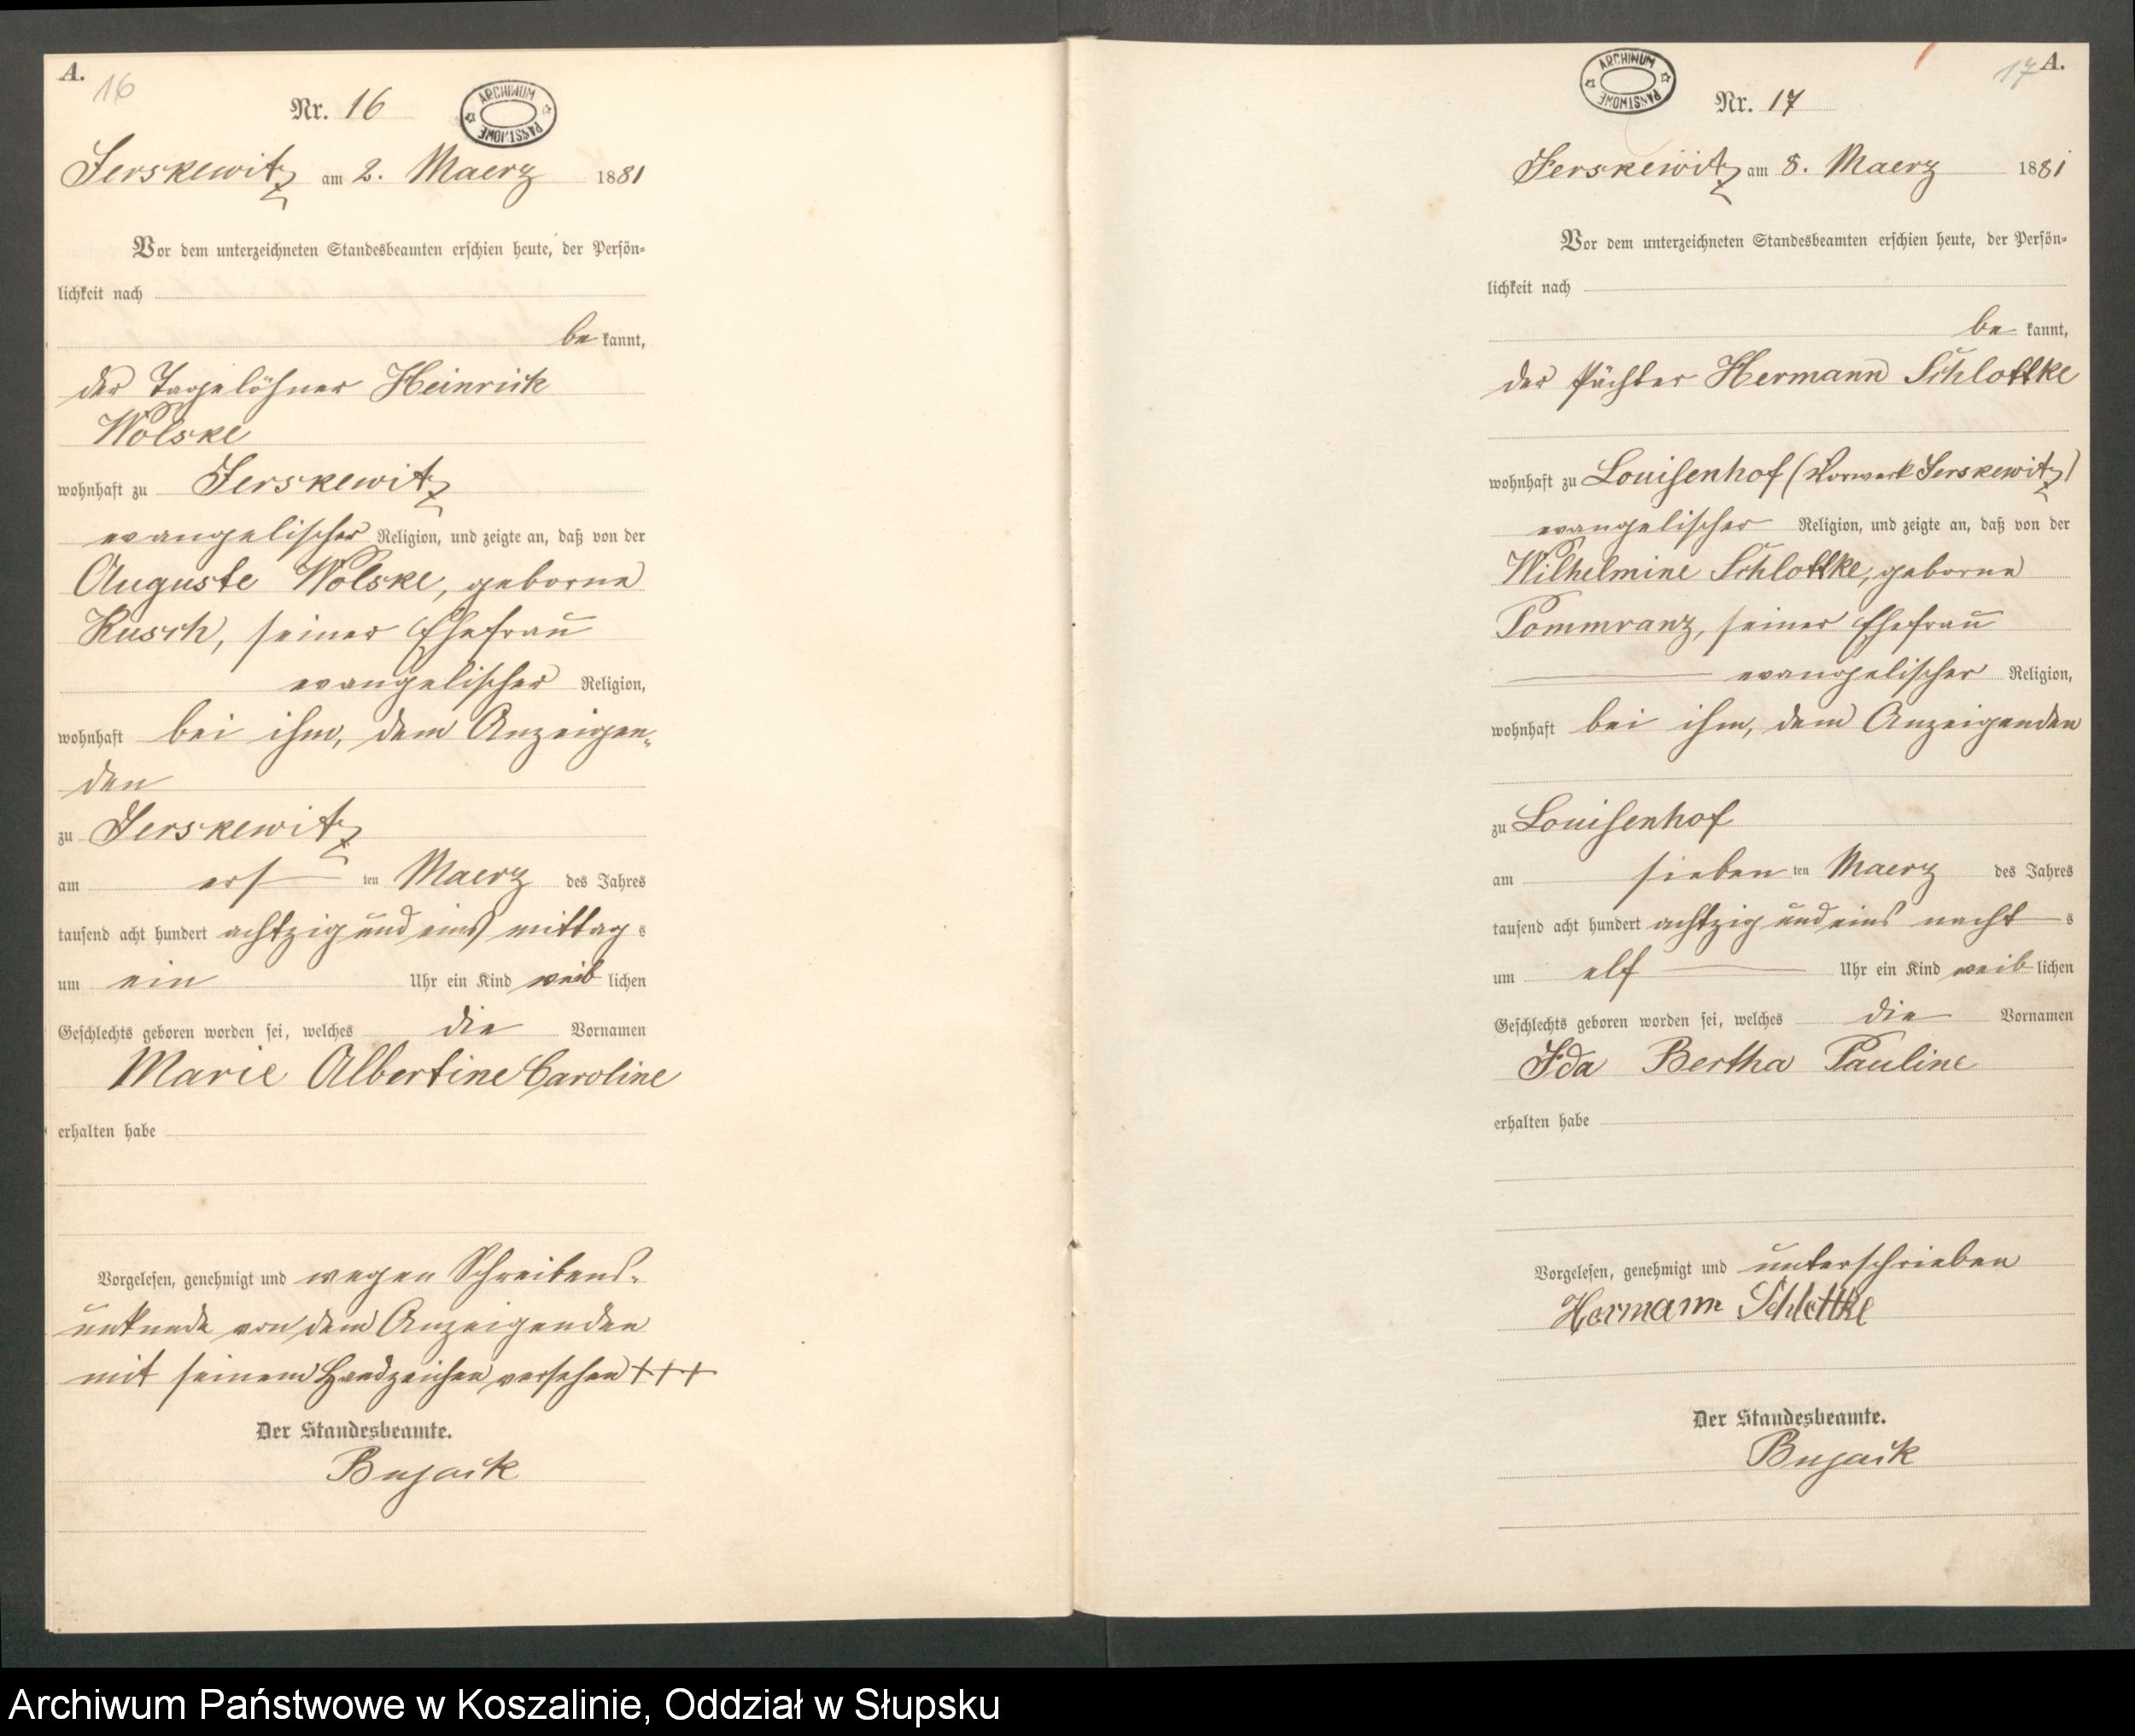 A.
16
Nr. 16
ARCHIWUM PAŃSTWOWE
Jerskewitz am 2. Maerz 1881
Vor dem unterzeichneten Standesbeamten erschien heute, der Persön-
lichkeit nach
be kannt,
der Tagelöhner Heinrich
Wolske
wohnhaft zu Jerskewitz
evangelischer Religion, und zeigte an, daß von der
Auguste Wolske, geborne
Kusch, seiner Ehefrau
evangelischer Religion,
wohnhaft bei ihm, dem Anzeigen-
den
zu Jerskewitz
am ers ten Maerz des Jahres
tausend acht hundert achtzig und eins mittag s
um ein Uhr ein Kind weib lichen
Geschlechts geboren worden sei, welches die Vornamen
Marie Albertine Caroline
erhalten habe
Vorgelesen, genehmigt und wegen Schreibens-
unkunde von dem Anzeigenden
mit seinem Handzeichen versehen +++
Der Standesbeamte.
Bujack
17 A.
Nr. 17
ARCHIWUM PAŃSTWOWE
Jerskewitz am 8. Maerz 1881
Vor dem unterzeichneten Standesbeamten erschien heute, der Persön-
lichkeit nach
be kannt,
der Pächter Hermann Schlottke
wohnhaft zu Louisenhof (Vorwerk Jerskewitz)
evangelischer Religion, und zeigte an, daß von der
Wilhelmine Schlottke, geborne
Pommranz, seiner Ehefrau
evangelischer Religion,
wohnhaft bei ihm, dem Anzeigenden
zu Louisenhof
am sieben ten Maerz des Jahres
tausend acht hundert achtzig und eins nacht s
um elf Uhr ein Kind weib lichen
Geschlechts geboren worden sei, welches die Vornamen
Ida Bertha Pauline
erhalten habe
Vorgelesen, genehmigt und unterschrieben
Hermann Schlottke
Der Standesbeamte.
Bujack
Archiwum Państwowe w Koszalinie, Oddział w Słupsku